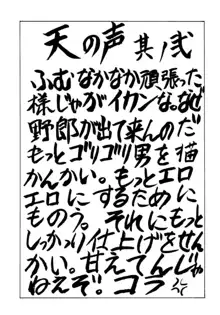 天の声 其ノ弐
ふむなかなか頑張った
様じゃがイカンな。なぜ
野郎が出て来んのだ
もっとゴリゴリ男を描
かんかい。もっとエロ
エロにするために
ものう。それにもっと
しっかり仕上げをせん
かい。甘えてんじゃ
ねえぞ！コラ